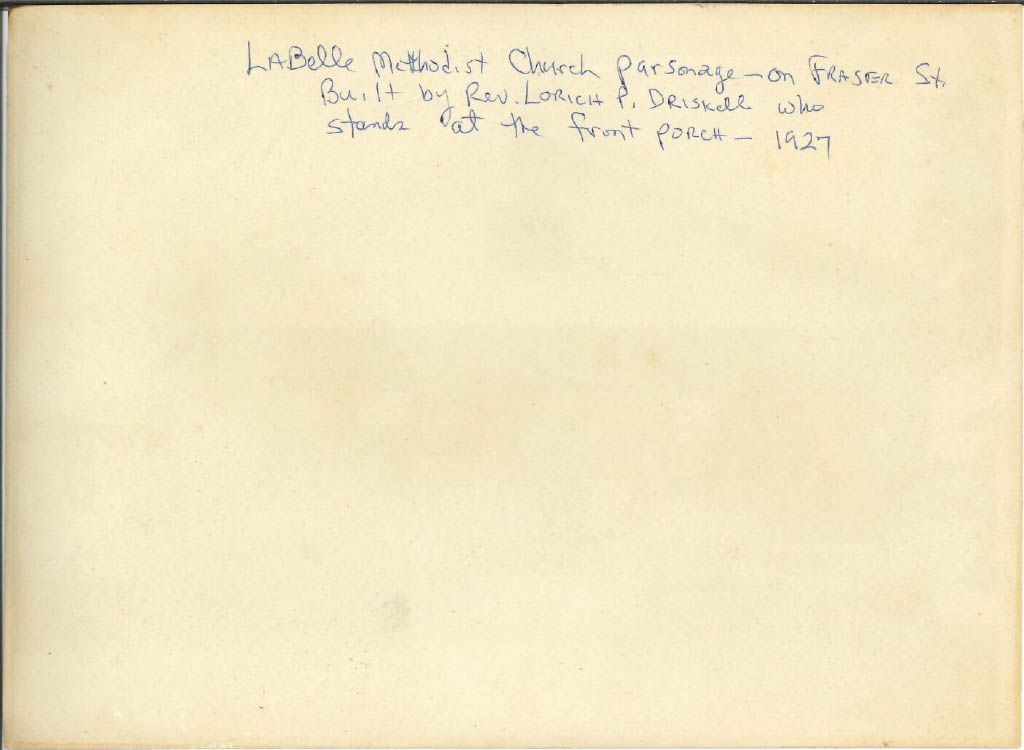 LABelle Methodist Church parsonage - on FRASER St.
Built by Rev. LORICH P. DRISKELL who
stands at the front PORCH - 1927